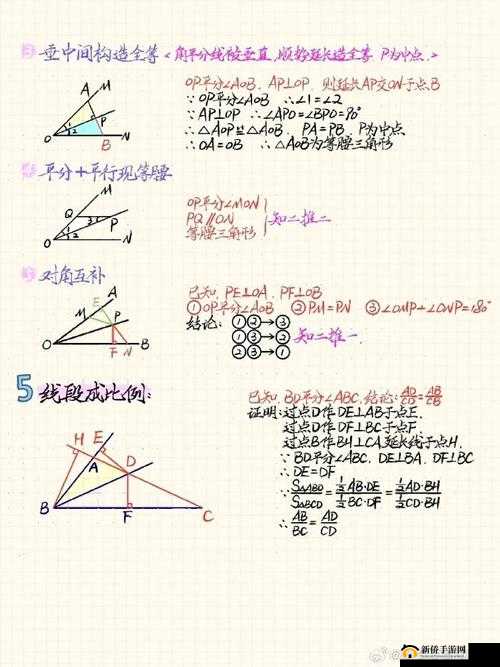 ③ 垂中间构造全等 <角平分线被垂直,顺势延长造全等 P为中点.>
OP平分∠AOB AP⊥OP, 则延长AP交ON于点B
∵ OP平分∠AOB ∴∠1=∠2
∵ AP⊥OP ∴∠APO=∠BPO=90°
∴ △AOP≌△AOB, PA=PB, P为中点
∴ OA=OB ∴ △AOB为等腰三角形
M
A
P
1
2
O
B
N
平分+平行现等腰
OP平分∠MON
PQ∥ON
等腰三角形
知二推二
M
Q
3
P
1
2
O
N
对角互补
已知, PE⊥OA, PF⊥OB
①OP平分∠AOB ②PM=PN ③∠OMP+∠ONP=180°
结论:
①②→③
①③→②
②③→①
知二推一
A
E
M
P
O
F
N
B
5 线段成比例:
已知, BD平分∠ABC, 结论: AD/CD=AB/CB
证明:过点D作DE⊥AB于点E.
过点D作DF⊥BC于点F.
过点B作BH⊥CA延长线于点H.
∵ BD平分∠ABC, DE⊥BA, DF⊥BC
∴ DE=DF
∴ S△ABD/S△BCD = ½AB·DE/½BC·DF = ½AD·BH/½CD·BH
∴ AB/BC = AD/CD
H
E
A
D
B
F
C
新侨手游网